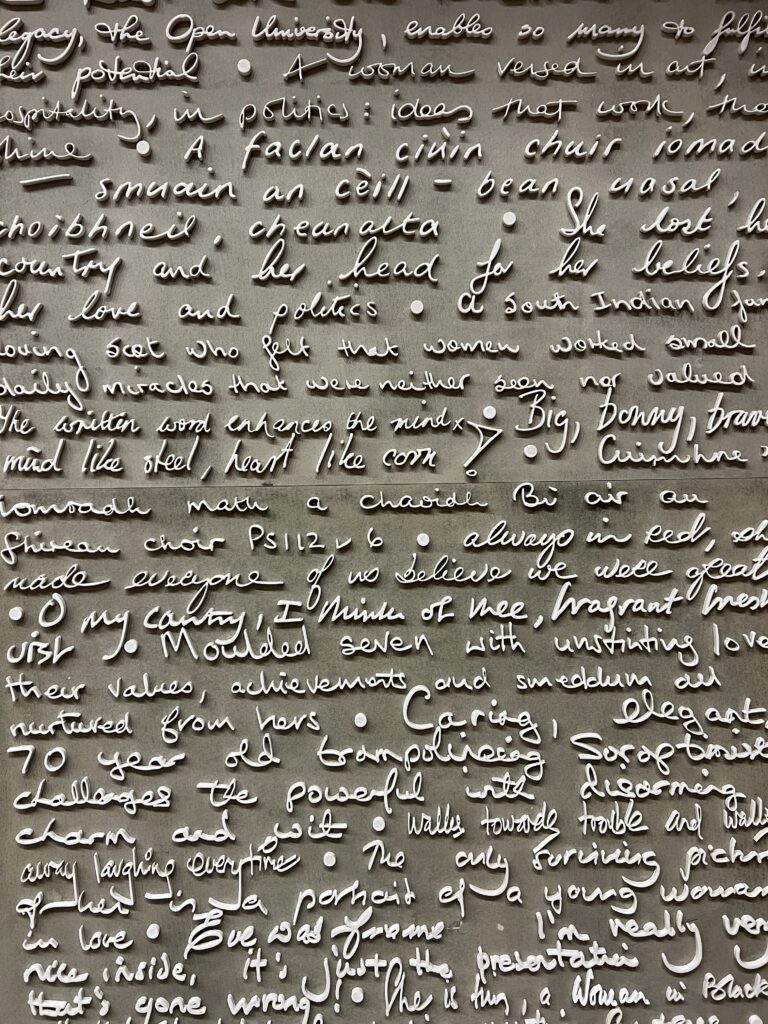 legacy, the Open University, enables so many to fulfil
their potential • A woman versed in art, in
hospitality, in politics: ideas that work, that
shine • A faclan ciùin chuir iomad
— smuain an cèill – bean uasal,
choibhneil, cheanalta • She lost her
country and her head for her beliefs.
her love and politics • a South Indian
loving Scot who felt that women worked small
daily miracles that were neither seen nor valued
the written word enhances the mind • Big, bonny, brave
mind like steel, heart like corn • Cuimhne
iomradh math a chaoidh Bi air an
fhirean choir Ps 112 v 6 • always in red, she
made everyone of us believe we were great
• O my cantry, I think of thee, fragrant
• Moulded seven with unstinting love
their values, achievements and smeddum all
nurtured from hers • Caring, elegant,
70 year old trampolining Soroptimist
challenges the powerful with disarming
charm and wit • walks towards trouble and walks
away laughing everytime • The only surviving picture
of her is a portrait of a young woman
in love • Eve was framed I'm really very
nice inside, it's just the presentation
that's gone wrong! • She is fun, a Woman in Black